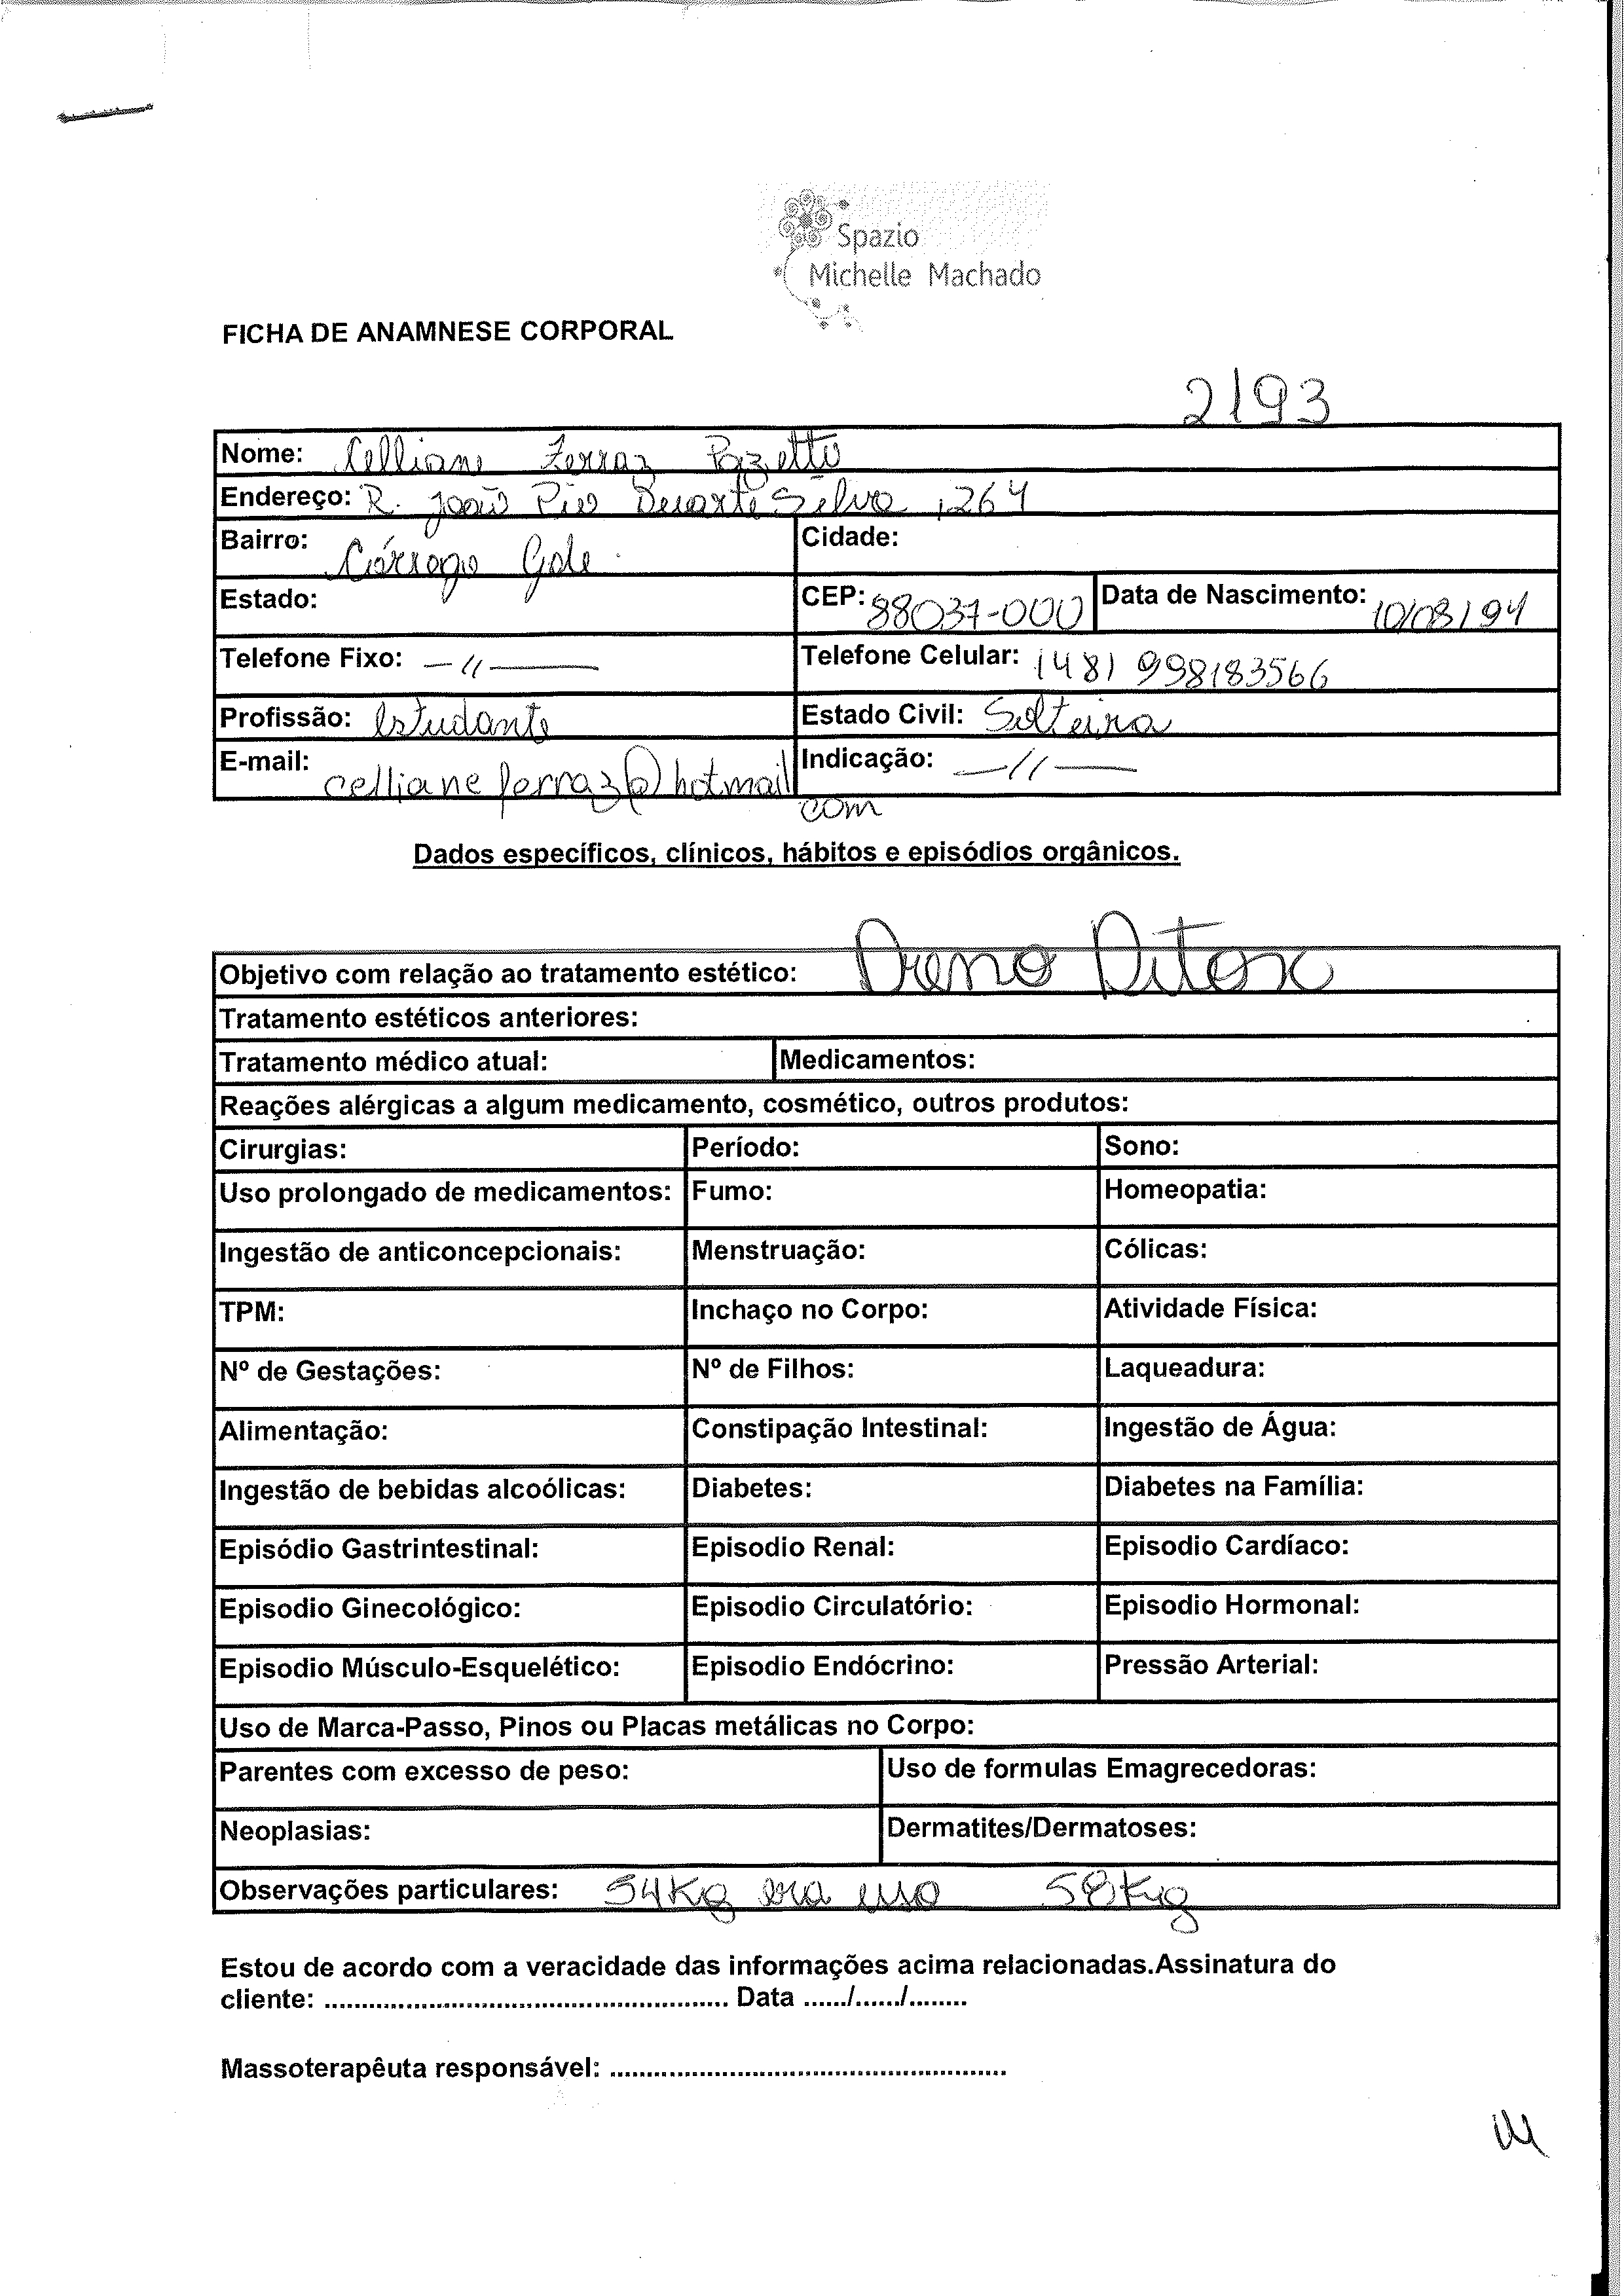 Spazio
Michelle Machado
FICHA DE ANAMNESE CORPORAL
2193
Nome: Celliane Ferraz Pazetto
Endereço: R. João Pio Duarte Silva, 264
Bairro: Córrego Gde. Cidade:
Estado: CEP: 88037-000 Data de Nascimento: 10/08/94
Telefone Fixo: —//— Telefone Celular: (48) 998183566
Profissão: Estudante Estado Civil: Solteira
E-mail: celliane ferraz@hotmail Indicação: —//—
com
Dados específicos, clínicos, hábitos e episódios orgânicos.
Objetivo com relação ao tratamento estético: Dreno Ditox
Tratamento estéticos anteriores:
Tratamento médico atual: Medicamentos:
Reações alérgicas a algum medicamento, cosmético, outros produtos:
Cirurgias: Período: Sono:
Uso prolongado de medicamentos: Fumo: Homeopatia:
Ingestão de anticoncepcionais: Menstruação: Cólicas:
TPM: Inchaço no Corpo: Atividade Física:
Nº de Gestações: Nº de Filhos: Laqueadura:
Alimentação: Constipação Intestinal: Ingestão de Água:
Ingestão de bebidas alcoólicas: Diabetes: Diabetes na Família:
Episódio Gastrintestinal: Episodio Renal: Episodio Cardíaco:
Episodio Ginecológico: Episodio Circulatório: Episodio Hormonal:
Episodio Músculo-Esquelético: Episodio Endócrino: Pressão Arterial:
Uso de Marca-Passo, Pinos ou Placas metálicas no Corpo:
Parentes com excesso de peso: Uso de formulas Emagrecedoras:
Neoplasias: Dermatites/Dermatoses:
Observações particulares: 54Kg era 58Kg
Estou de acordo com a veracidade das informações acima relacionadas.Assinatura do
cliente: ...................................................... Data ....../....../........
Massoterapêuta responsável: .....................................................